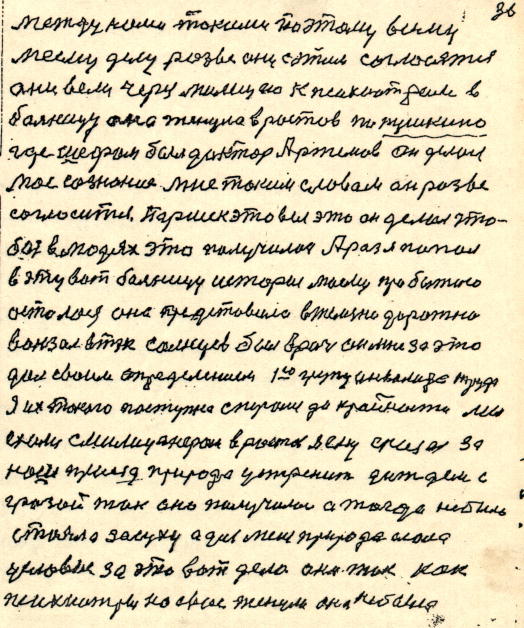 36
между нами такими поэтому всему
моему делу разве они с этим согласятся
они вели через милицию к психиатрам в
больницу она тянула в ростов по пушкино
где шефом был доктор Артемов он делал
мое сознание мне таким словам он разве
согласится. Паршек это вел это он делал что-
бы в людях это получилось А раз я попал
в эту вот больницу история моему пробытою
осталася она представила в железно дорожно
вокзал втэк солнцев был врач он мне за это
дал своим определением 1ю групу инвалида труда
Я их такого поступка старого до крайности мы
ехали с милицанером в ростов я ему сказал за
наш приезд природа устренит дождем с
грозой так оно получилось а тогда небыло
стояла засуху а для меня природа дала
условие за это вот дело она так как
психиатры на свое тянула она небыла